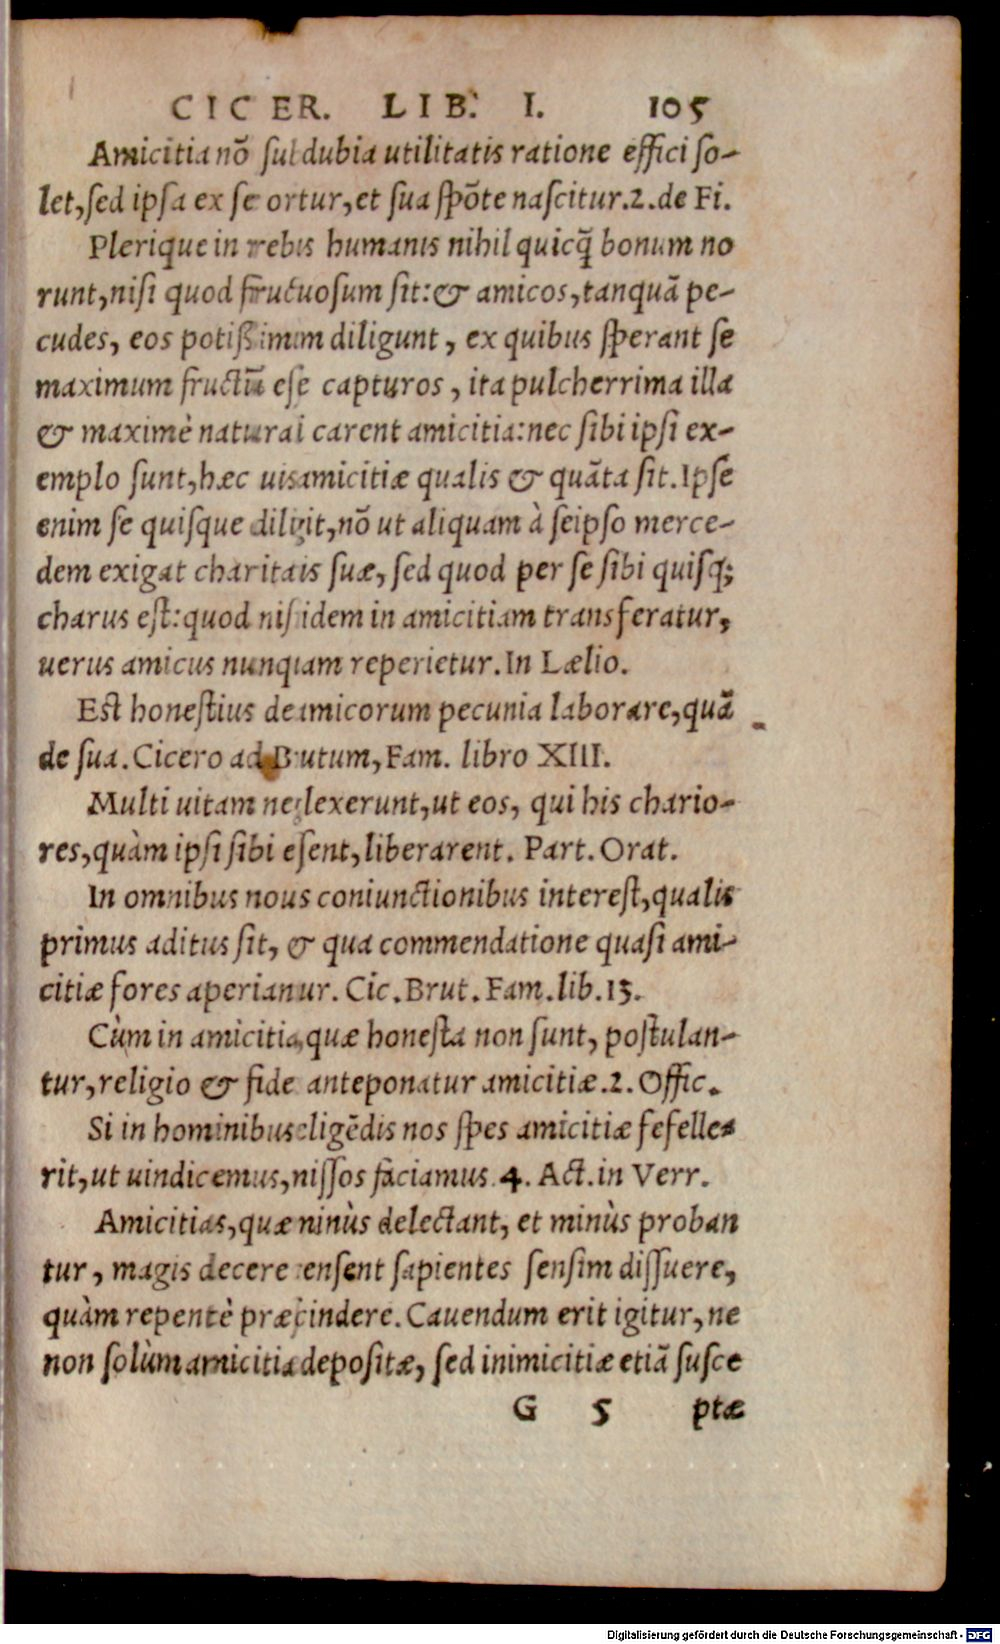 CICER. LIB. I. 105
Amicitia nõ sub dubia utilitatis ratione effici so-
let, sed ipsa ex se ortur, et sua spõte nascitur. 2. de Fi.
Plerique in rebus humanis nihil quicq̃ bonum no
runt, nisi quod fructuosum sit: & amicos, tanquã pe-
cudes, eos potißimum diligunt, ex quibus sperant se
maximum fructũ esse capturos, ita pulcherrima illa
& maximè naturali carent amicitia: nec sibi ipsi ex-
emplo sunt, hæc uis amicitiæ qualis & quãta sit. Ipse
enim se quisque diligit, nõ ut aliquam à seipso merce-
dem exigat charitatis suæ, sed quod per se sibi quisq;
charus est: quod nisi idem in amicitiam transferatur,
uerus amicus nunquam reperietur. In Lælio.
Est honestius de amicorum pecunia laborare, quã
de sua. Cicero ad Brutum, Fam. libro XIII.
Multi uitam neglexerunt, ut eos, qui his chario-
res, quàm ipsi sibi essent, liberarent. Part. Orat.
In omnibus nouis coniunctionibus interest, qualis
primus aditus sit, & qua commendatione quasi ami-
citiæ fores aperiantur. Cic. Brut. Fam. lib. 13.
Cùm in amicitia, quæ honesta non sunt, postulan-
tur, religio & fides anteponatur amicitiæ. 2. Offic.
Si in hominibus eligẽdis nos spes amicitiæ fefelle-
rit, ut uindicemus, missos faciamus. 4. Act. in Verr.
Amicitias, quæ minùs delectant, et minùs proban
tur, magis decere censent sapientes sensim dissuere,
quàm repentè præcindere. Cauendum erit igitur, ne
non solùm amicitiæ depositæ, sed inimicitiæ etiã susce
G 5 ptæ
Digitalisierung gefördert durch die Deutsche Forschungsgemeinschaft - DFG